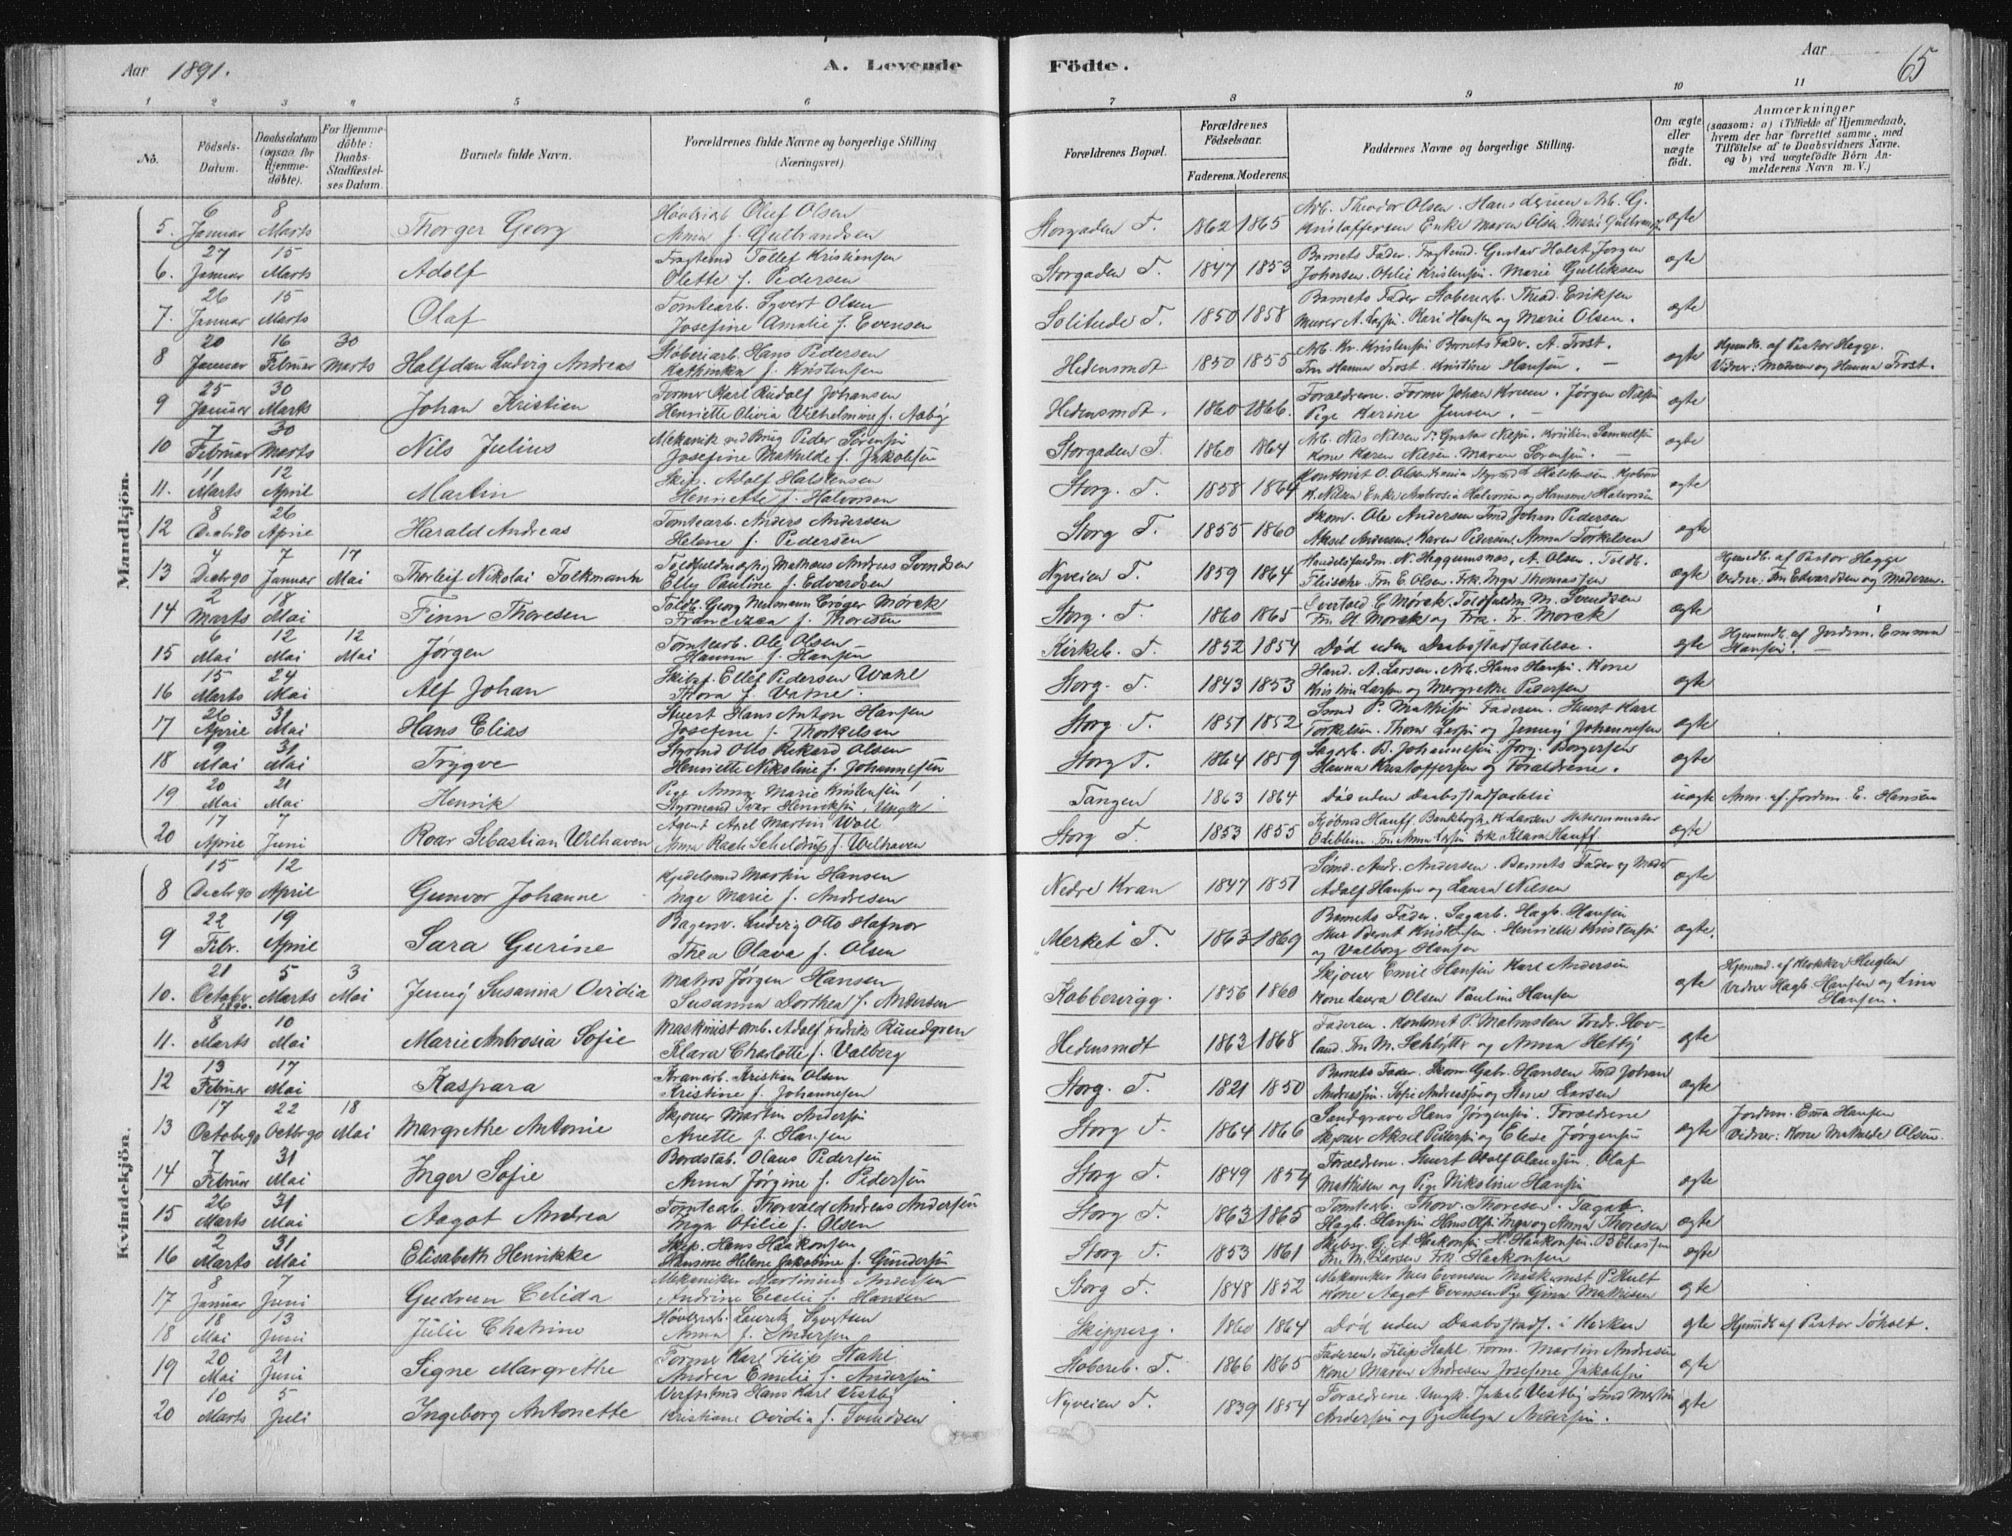 Aar 1891.
A. Levende Födte.
Aar
65
1 2 3 4 5 6 7 8 9 10 11
No.
Födsels-Datum.
Daabsdatum (ogsaa for Hjemmedöbte).
For Hjemmedöbte: Daabs-Stadfæstelses Datum
Barnets fulde Navn.
Forældrenes fulde Navne og borgerlige Stilling (Næringsvei).
Forældrenes Bopæl.
Forældrenes Födselsaar.
Faderens. Moderens.
Faddernes Navne og borgerlige Stilling.
Om ægte eller uægte födt.
Anmærkninger (saasom: a) i Tilfælde af Hjemmedaab, hvem der har forrettet samme, med Tilföielse af to Daabsvidners Navne, og b) ved uægtefödte Börn Anmelderens Navn m. V.)
Mandkjön.
5. 6 Januar 8 Marts Thorger Georg Høvleriarb Oluf Olsen Anna f. Gulbrandsen Storgaden T. 1862 1865 Arb. Theodor Olsen. Arb. G. Kristoffersen Enke Maren Olsen ægte
6. 27 Januar 15 Marts Adolf Tollef Kristiansen Olette f. Pedersen Storgaden T. 1847 1853 Barnets Fader. Gustav Holst, Jørgen Johnsen. Otilie Kristensen. Marie Gulliksen ægte
7. 26 Januar 15 Marts Olaf Tomtearb. Syvert Olsen Josefine Amalie f. Evensen Solitude T. 1850 1858 Barnets Fader Støberiarb. Theod. Eriksen Murer A. Larsen. Kari Hansen og Marie Olsen. ægte
8 20 Januar 16 Februar 30 Marts Halfdan Ludvig Andreas Støberiarb. Hans Pedersen Kathinka f. Kristensen Hedensmdt 1850 1855 Arb. Kr. Kristensen Barnets Fader. A. Trost. Fru Hanna Trost. Kristine Hansen. ægte Hjemdb. af Pastor Hegge. Vidner: Moderen og Hanna Trost.
9 25 Januar 30 Marts Johan Kristian Former Karl Rudolf Johansen Henriette Olivia Vilhelmine f. Næbø Hedensmdt. 1860 1866. Forældrene. Former Johan Kruse. Jørgen Nilsen Pige Karine Jensen. ægte
10 7 Februar 30 Marts Nils Julius Mekanik ved Brug Peder Sørensen Josefine Mathilde f. Jakobsen Storgaden T. 1860 1864 Arb. Nils Nilsen. Gustav Nilsen. Kristian Samuelsen Kone Karen Nilsen. Maren Sørensen. ægte
11. 11 Marts 12 April Martin Skip. Adolf Halstensen Henriette f. Halvorsen Storg. T. 1858 1864 Kontorist O. Olsen Halstensen K. Nilsen Enke Ambrosia Halvorsen og Hansine Halvorsen ægte
12 8 Decbr 90 26 April Harald Andreas Tomtearb. Anders Andersen Helene f. Pedersen Storg T. 1855 1860 Skom. Ole Andersen Johan Pedersen Aksel Andersen. Karen Pedersen. Anna Torkelsen ægte
13 4 Decbr 90 7 Januar 17 Mai Thorleif Nikolai Folkmann Toldfuldmægtig Mathæus Andreas Svendsen Elly Pauline f. Edvardsen Nyveien T. 1859 1864 Handelsfuldm. N. Heggumsnæs, A. Olsen. Toldb. Fleischer Fru E. Olsen. Frk. Inga Thomassen ægte Hjemdb. af Pastor Hegge Vidner: Fru Edvardsen og Moderen.
14 2 Marts 18 Mai Finn Thoresen Toldb. Georg Neumann Crøger Mørck Franciska f. Thoresen Storg. T. 1860 1865 C Mørck. Toldfuldm. M. Svendsen Fru H. Mørck og Frk. Fr. Mørck ægte
15 6 Mai 12 Mai 12 Mai Jørgen Tomtearb. Ole Olsen Hanna f. Hansen Kirkeb. T. 1852 1854 Død uden Daabsstadfæstelse. ægte Hjemmdb. af Jordm. Emma Hansen.
16 15 Marts 24 Mai Alf Johan Skibsf. Ellef Pedersen Wahl Thora f. Vatne. Storg. T. 1843 1853 Hand. A. Larsen. Arb. Hans Hansen. Kone Kristine Larsen og Margrethe Pedersen ægte
17 26 April 31 Mai Hans Elias Stuert Hans Anton Hansen Josefine f. Thorkelsen Storg. T. 1851 1852 Smed P. Mathisen Faderen. Stuert Karl Torkelsen. Thora Larsen og Jenny Johannesen ægte
18 9 Mai 31 Mai Trygve Styrmd Otto Rikard Olsen Henriette Nikoline f. Johannesen Storg T. 1864 1859 Sagarb. B. Johannesen. Jørg. Borgersen Hanna Kristoffersen og Forældrene. ægte
19 20 Mai 21 Mai Henrik Pige Anna Marie Kristensen Styrmand Ivar Henriksen, Ungk Tangen 1863 1864 Død uden Daabsstadfæstelse uægte Anm. af Jordm. E. Hansen
20 17 April 7 Juni Roar Sebastian Welhaven Agent Axel Martin Woll Anna f. Welhaven Storg T. 1853 1855 Kjøbmd Hauff Bankbogh. K Larsen Havnemester Ødeblem. Fru Anna Larsen Frk. Klara Hauff ægte
Kvindekjön.
8 15 Decbr 90 12 April Gunvor Johanne Kjedelsmd Martin Hansen Inge Marie f. Andresen Nedre Kran 1847 1851 Smd. Andr. Andersen. Barnets Fader og Moder Adolf Hansen og Laura Nilsen ægte
9 22 Febr. 19 April Sara Gurine Bagersv. Ludvig Otto Hafnor Thea Olava f. Olsen Merket T. 1863 1869 Barnets Fader. Sagarb. Hagb. Hansen Bernt Kristensen. Henriette Kristensen og Valborg Hansen ægte.
10. 21 October 1890. 5 Marts 3 Mai Jenny Susanna Ovidia Matros Jørgen Hansen Susanna Dorthea f. Andersen Kobberevigg. 1856 1860 Skjøner Emil Hansen Karl Andersen Kone Laura Olsen Pauline Hansen ægte Hjemmd. af Klokker Huglen Vidner Hagb. Hansen og Lina Hansen.
11. 8 Marts 10 Mai Marie Ambrosia Sofie Maskinist Adolf Fredrik Rundgren Klara Charlotte f. Valberg Hedensmdt 1863 1868 Faderen. Kontorist P. Malmsten Fredr. Hovland. Fru M. Schlytter og Anna Hetty ægte
12 13 Februar 17 Mai Kaspara Kranarb. Kristian Olsen Kristine f. Johannesen Storg. T. 1821 1850 Barnets Fader. Skom Gabr. Hansen Johan Andreassen. Sofie Andreassen og Stine Larsen ægte
13 17 October 90 22 Octbr 90 18 Mai Margrethe Antonie Skjøner Martin Andersen Anette f. Hansen Storg T. 1864 1866 Sandgraver Hans Jørgensen. Forældrene Skjøner Aksel Pedersen og Elese Jørgensen ægte Jordm. Emma Hansen Vidner: Kone Mathilde Olsen
14 7 Februar 31 Mai Inger Sofie Bordstab. Olaus Pedersen Anna Jørgine f. Pedersen Storg T. 1849 1854 Forældrene. Stuert Adolf Olaussen. Olaf Mathisen og Pige Nikoline Hansen ægte
15 26 Marts 31 Mai Aagot Andrea Tomtearb. Thorvald Andreas Andersen Inga Otilie f. Olsen Storg T. 1863 1865 Tomtearb. Thorv. Thoresen. Hagb. Hansen Hans Olsen Inga og Anna Thoresen ægte
16 2 Marts 31 Mai Elisabeth Henrikke Skip. Hans Haakonsen Hansine Helene Jakobine f. Gundersen Storg T. 1853 1861 G. A. Haakonsen H. Haakonsen. B Eliassen Fru M. Larsen Frk. Haakonsen ægte
17 8 Januar 7 Juni Gudrun Elida Mekaniker Martinius Andersen Andrine Cecilie f. Hansen Storg T. 1848 1852 Mekaniker Nils Evensen Maskinist P Hult Kone Aagot Evensen Pige Gina Mathisen ægte
18 18 Mai 13 Juni Julie Chatrine Høvleriarb. Lauritz Syvertsen Anna f. Andersen Skipperg. 1860 1864 Død uden Daabsstadf. i Kirken ægte Hjemdb af Pastor Søholt.
19 20 Mai 21 Juni Signe Margrethe Former Karl Filip Stahl Andrea Emilie f. Andersen Støbereb. T. 1866 1865 Faderen, Filip Stahl Form. Martin Andresen Kone Maren Andresen Josefine Jakobsen ægte
20 10 Marts 5 Juli Ingeborg Antonette Hans Karl Vestby Kristiane Ovidia f. Svendsen Nyveien T. 1839 1854 Forældrene. Ungk. Jakob Vestby Martin Andersen og Pige Helga Andersen. ægte